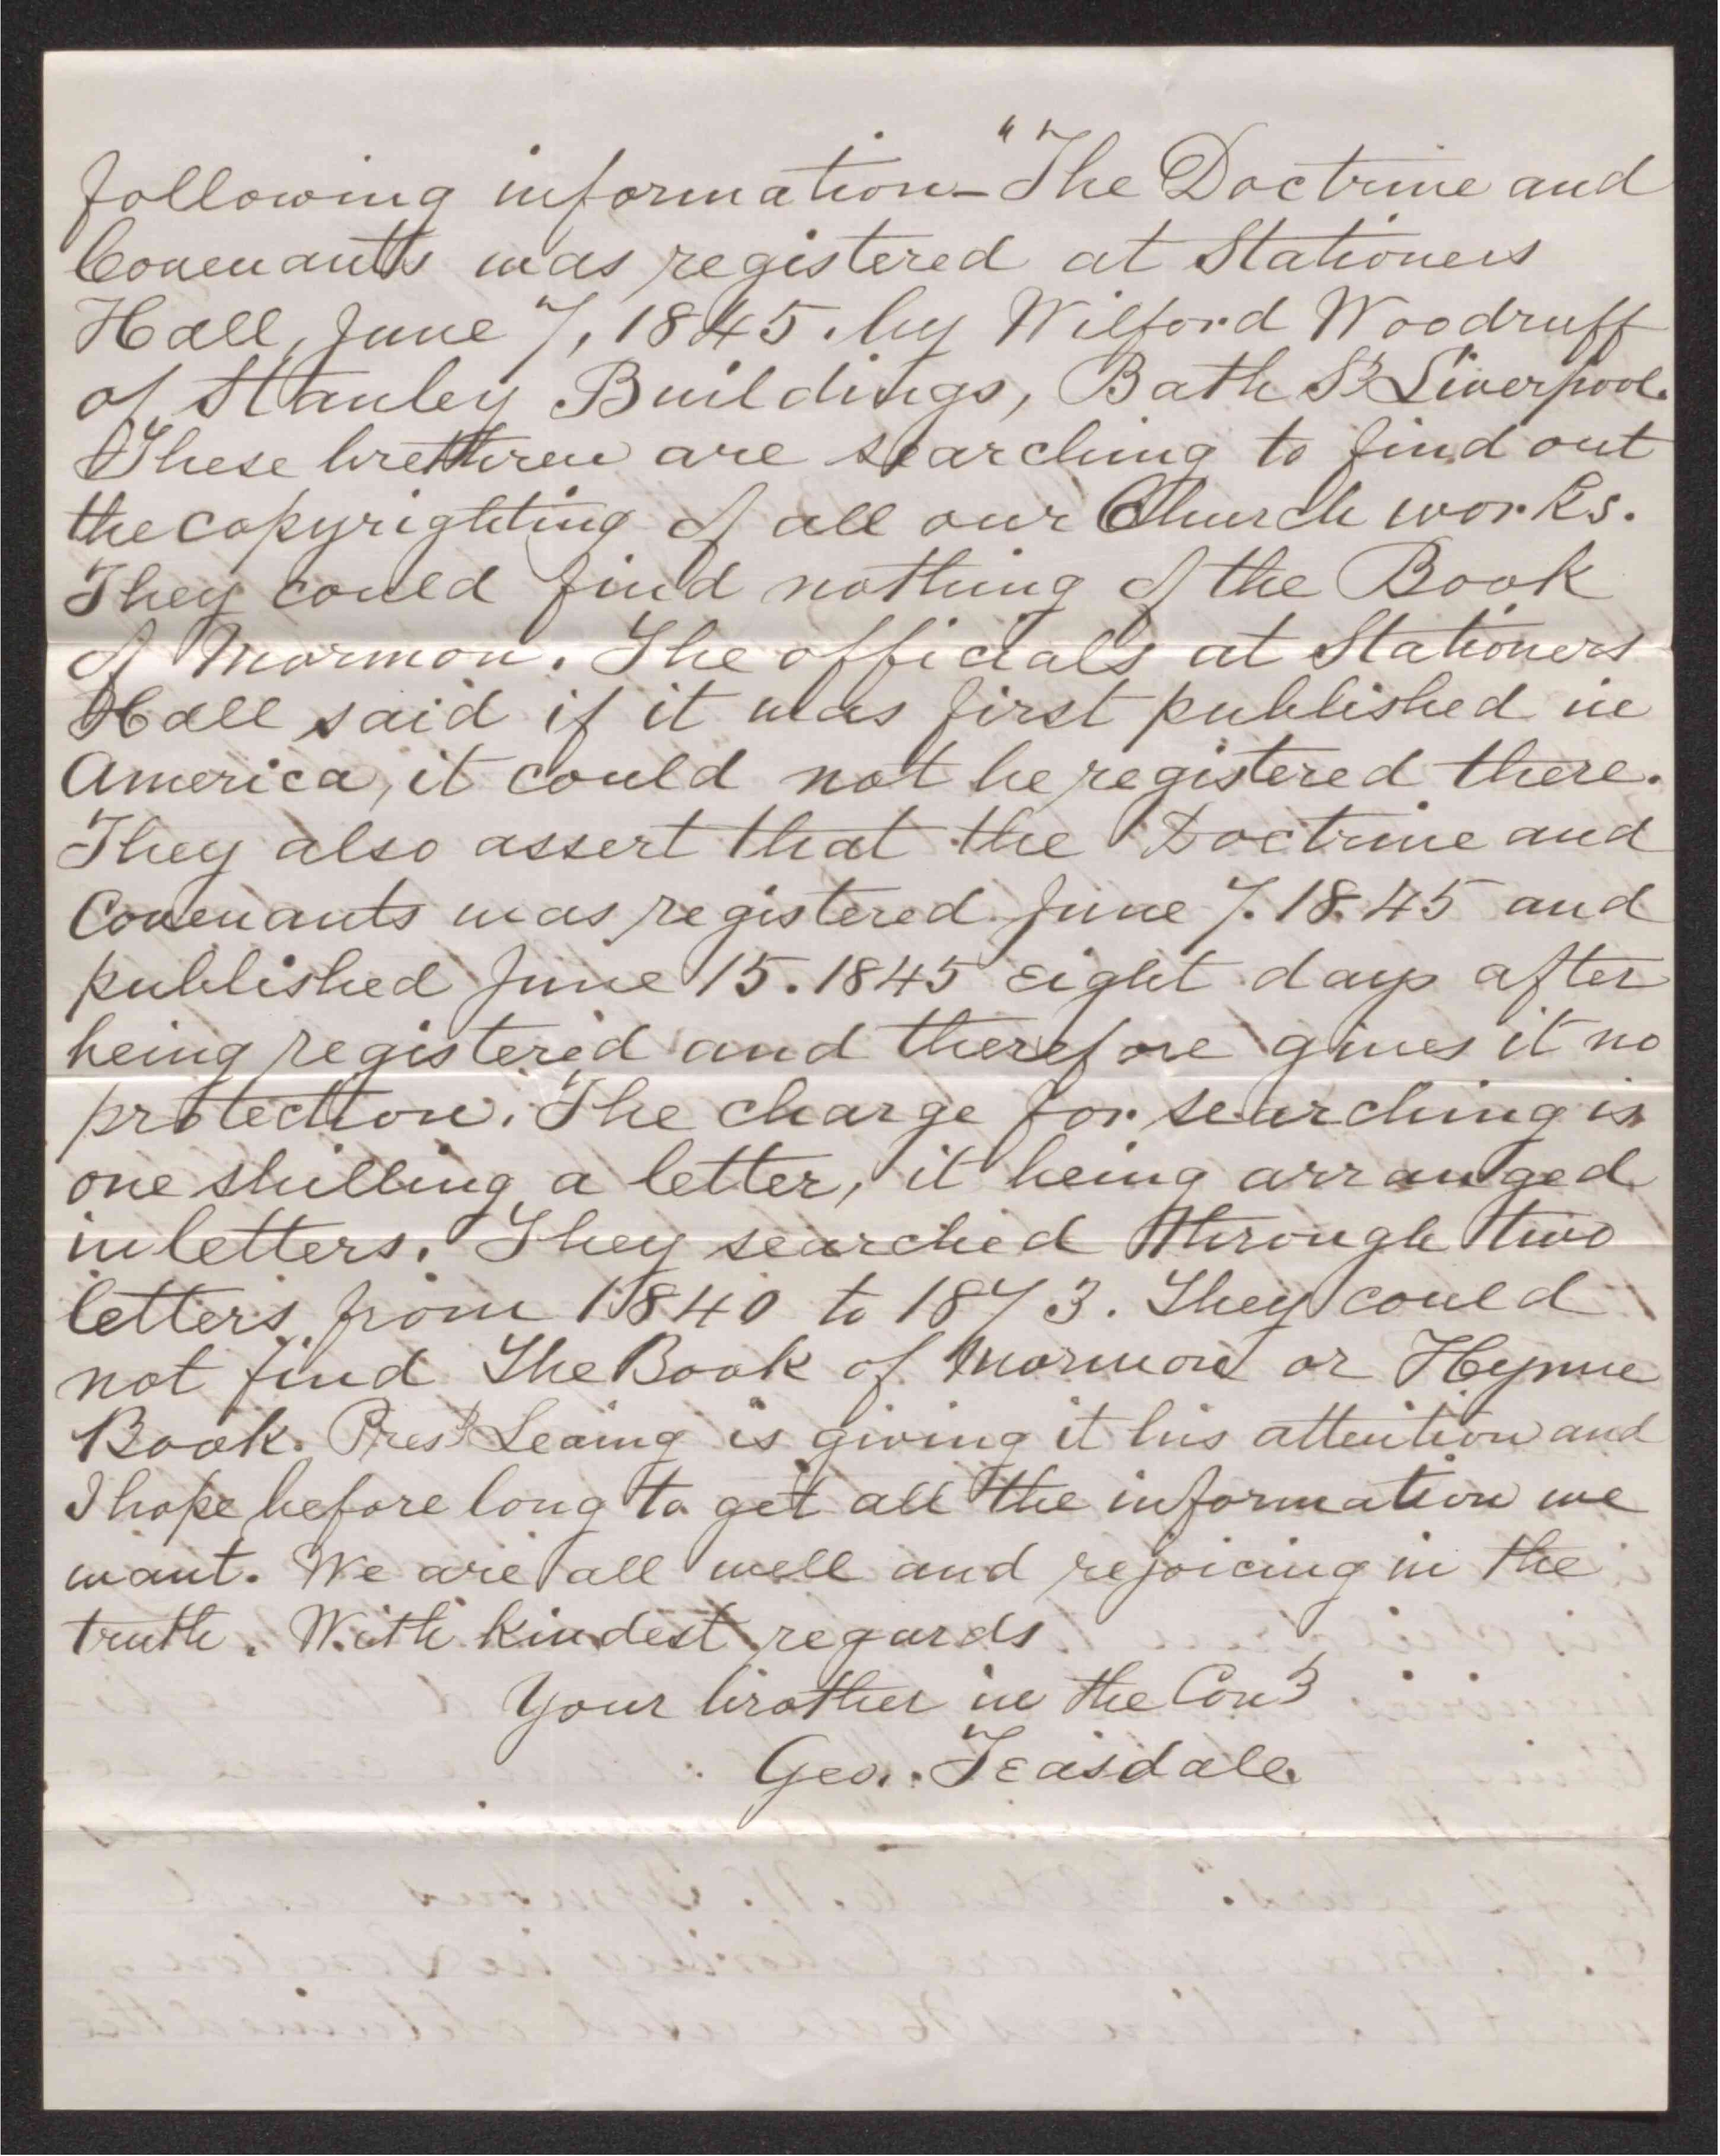 following information—"The Doctrine and
Covenants was registered at Stationers
Hall, June 7, 1845. by Wilford Woodruff
of Stanley Buildings, Bath St Liverpool.
These brethren are searching to find out
the copyrighting of all our Church works.
They could find nothing of the Book
of Mormon. The officials at Stationers
Hall said if it was first published in
America, it could not be registered there.
They also assert that the Doctrine and
Covenants was registered June 7. 1845 and
published June 15. 1845 eight days after
being registered and therefore gives it no
protection. The charge for searching is
one shilling a letter, it being arranged
in letters. They searched through two
letters from 1840 to 1873. They could
not find The Book of Mormon or Hymn
Book. Prest Leaing is giving it his attention and
I hope before long to get all the information we
want. We are all well and rejoicing in the
truth. With kindest regards
Your brother in the Cont
Geo. Teasdale